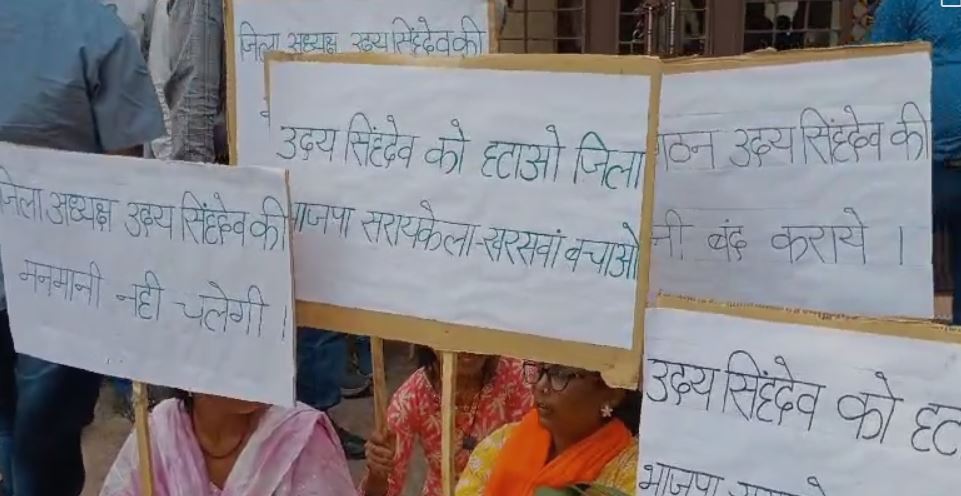 जिला अध्यक्ष उदय सिंहदेव की
उदय सिंहदेव को हटाओ जिला
भाजपा सरायकेला-खरसवां बचाओ
गठन उदय सिंहदेव की
नी बंद कराये ।
जिला अध्यक्ष उदय सिंहदेव की
मनमानी नही चलेगी ।
उदय सिंहदेव को हट
भाजपा